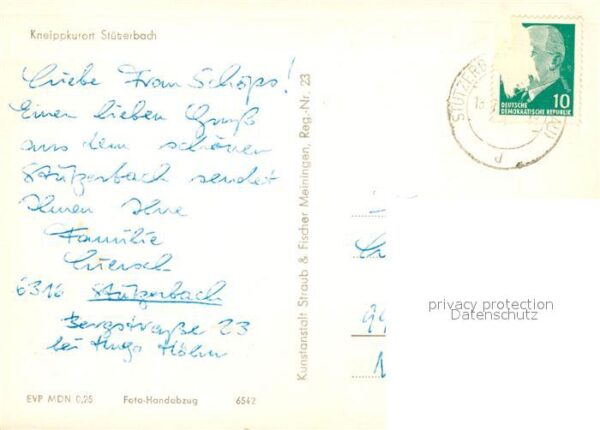 Kneippkurort Stützerbach
Liebe Frau Schöps!
Einen lieben Gruß
aus dem schönen
Stützerbach sendet
Ihnen Ihre
Familie
6316 Stützerbach
Bergstraße 23
bei Hugo Höhn
EVP MDN 0,25 Foto-Handabzug 6542
Kunstanstalt Straub & Fischer Meiningen, Reg.-Nr. 23
10
DEUTSCHE
DEMOKRATISCHE REPUBLIK
privacy protection
Datenschutz